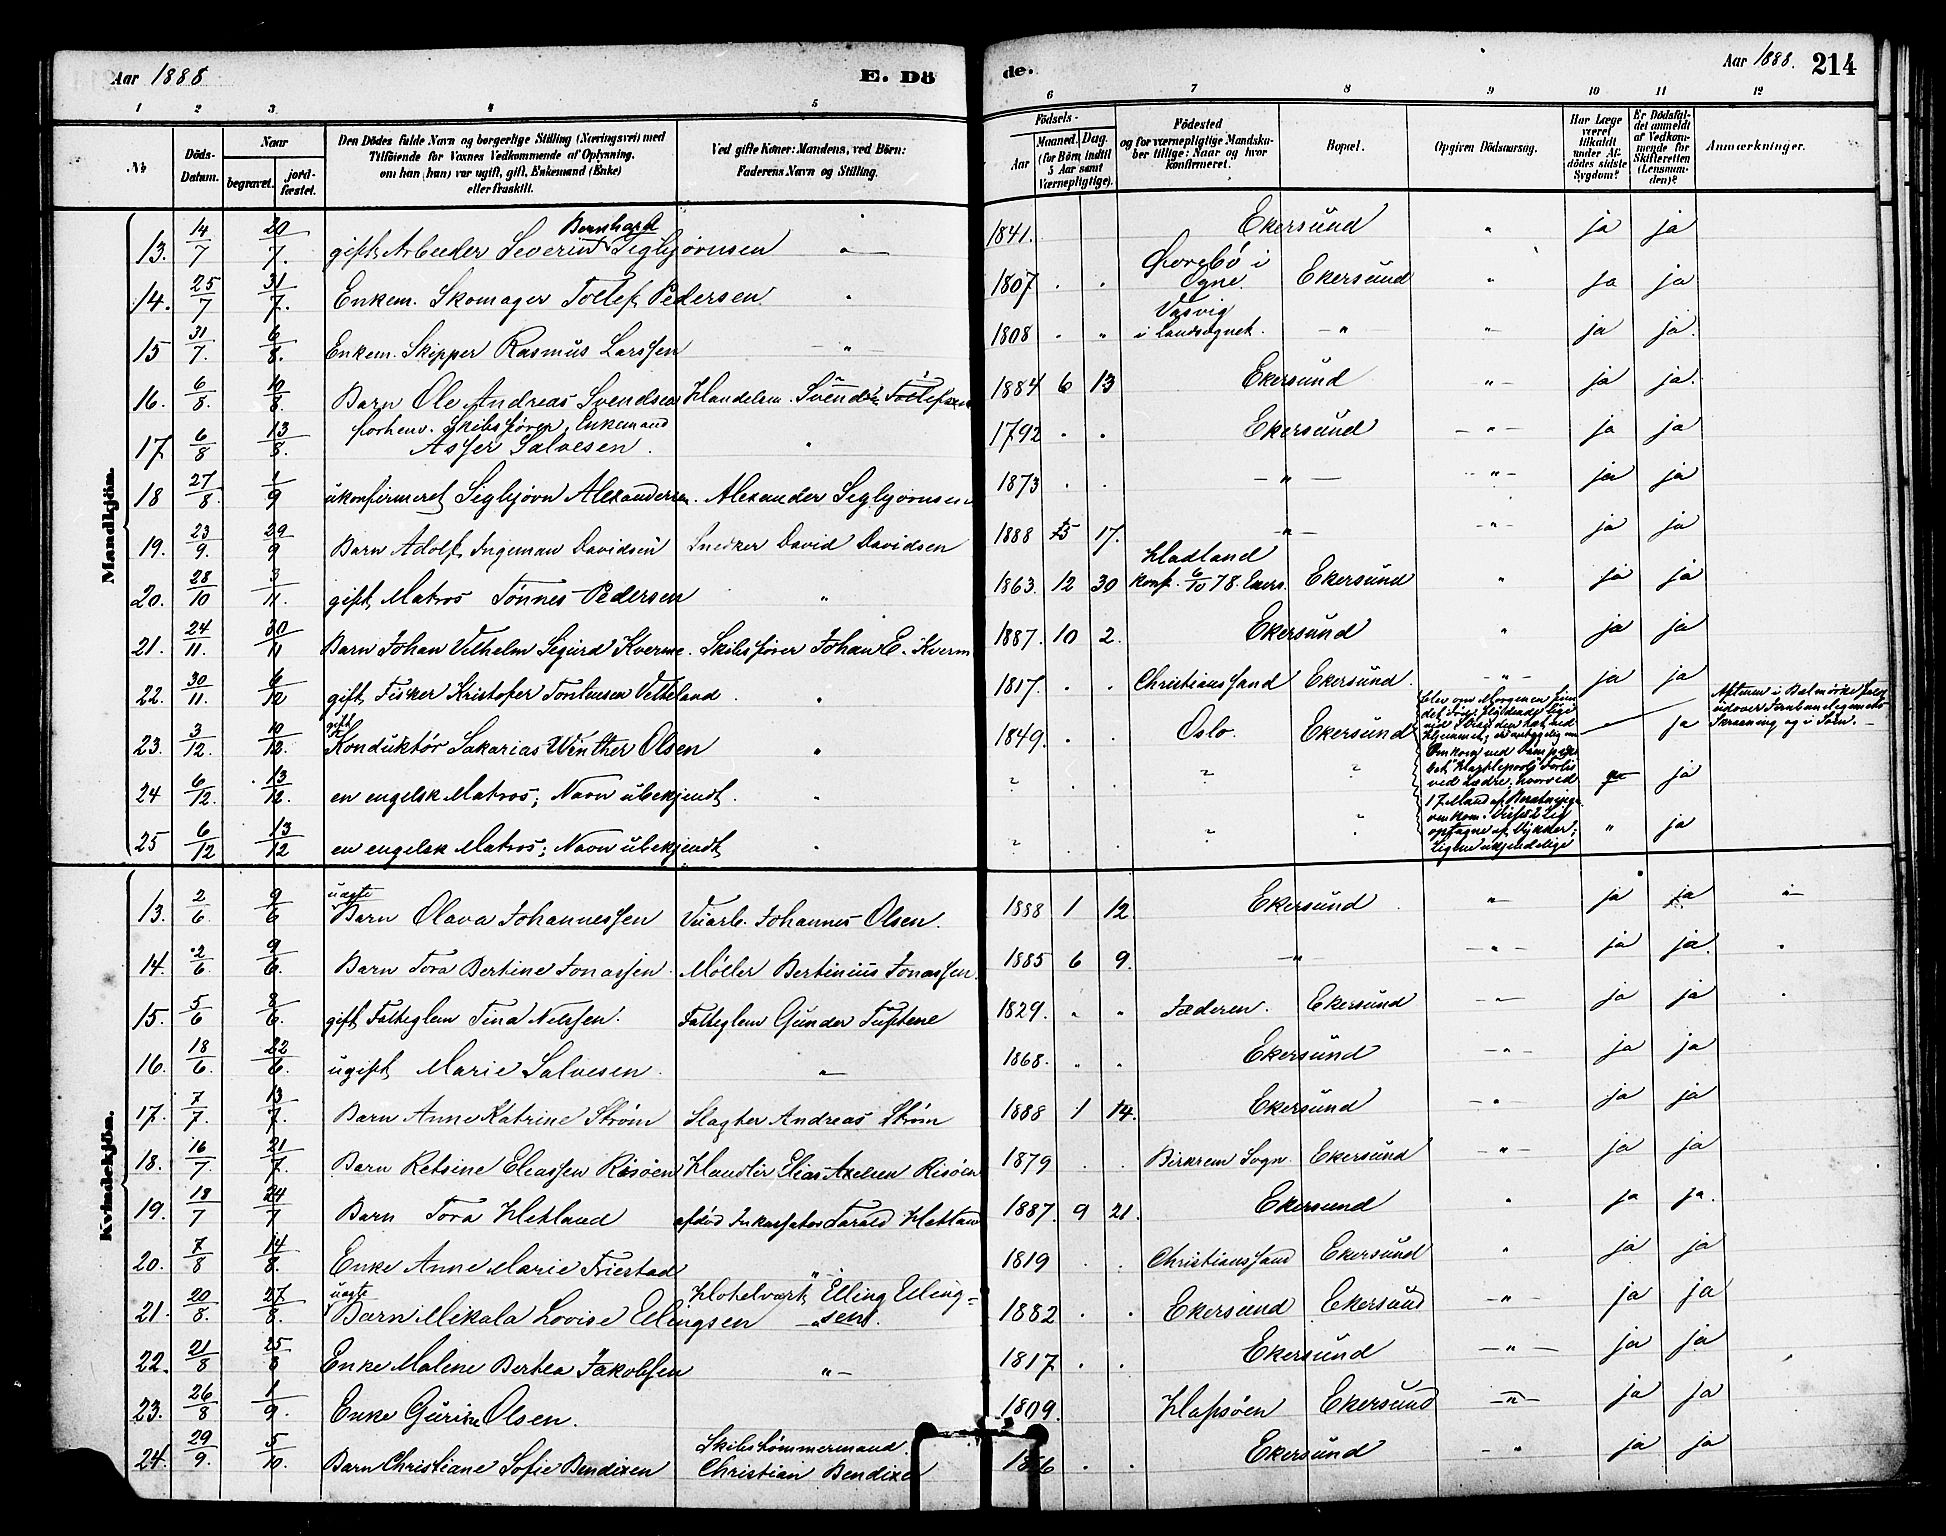 Aar 1888 E. Dö de. Aar 1888. 214
1 2 3 4 5 6 7 8 9 10 11 12
No
Döds-Datum.
Naar
begravet. jordfæstet.
Den Dödes fulde Navn og borgerlige Stilling (Næringsvei) med
Tilföiende for Voxnes Vedkommende af Oplysning,
om han (hun) var ugift, gift, Enkemand (Enke)
eller fraskilt.
Ved gifte Koner: Mandens, ved Börn:
Faderens Navn og Stilling.
Födsels-
Aar Maaned. Dag.
(for Börn indtil
5 Aar samt
Værnepligtige).
Födested
og for værnepligtige Mandskaber tillige: Naar og hvor
konfirmeret.
Bopæl.
Opgiven Dödsaarsag.
Har Læge
været
tilkaldt
under Afdödes sidste
Sygdom?
Er Dödsfaldet anmeldt
af Vedkommende for
Skifteretten
(Lensmanden)?
Anmærkninger.
Mandkjön.
13. 14/7 20/7. gift, Arbeider Severin Bernhard Sigbjørnsen " 1841. Ekersund " ja ja
14. 25/7 31/7. Enkem. Skomager Tollef Pedersen " 1807 . . Ørebø i Ogne. Ekersund " ja ja
15 31/7. 6/8. Enkem. Skipper Rasmus Larssen " 1808 . " Vasvig i Landsognet. " " ja ja.
16. 6/8. 10/8. Barn Ole Andreas Svendsen Handelsm. Svends. Tollefsen 1884 6 13 Ekersund " ja ja.
17 6/8 13/8. forhenv. Skibsfører, Enkemand
Asser Salvesen. " 1792 . . Ekersund " ja ja
18 27/8. 1/9 ukonfirmeret Sigbjørn Alexandersen. Alexander Sigbjørnsen 1873 . . " " ja ja
19. 23/9. 29/9 Barn Adolf Ingeman Davidsen Snedker David Davidsen 1888 5 17. " " ja ja
20. 28/10 3/11. gift, Matros Tønnes Pedersen " 1863. 12 30 Hadland
konf. 6/10 78. Ekers. Ekersund " ja ja
21. 24/11. 30/11 Barn Johan Vilhelm Sigurd Kverme. Skibsfører Johan E. Kverm 1887. 10 2. Ekersund " ja ja
22. 30/11. 6/12 gift, Fisker Kristofer Tomlensen Vetteland. " 1817. . . Christianssand Ekersund. " ja ja
23. 3/12. 10/12. gift Konduktør Sakarias Winther Olsen " 1849. . . Oslo. Ekersund — ja
24 6/12. 13/12. en engelsk Matros; Navn ubekjendt. " ja
25 6/12 13/12 en engelsk Matros; Navn ubekjendt " " ja
Kvindekjön.
13. 2/6 9/6 uægte Barn Olava Johannessen Johannes Olsen. 1888 1 12. Ekersund. " ja ja "
14. 2/6. 9/6. Barn Tora Bertine Jonassen. Møller Bertinius Jonassen. 1885 6 9. " " ja ja. "
15. 5/6 8/6. gift, Fattiglem Tina Nilssen. Fattiglem Gunder Tuftene 1829. " " Jæderen. Ekersund " ja ja .
16. 18/6. 22/6. ugift, Marie Salvesen. " 1868. " " Ekersund " ja ja
17. 7/7. 13/7. Barn Anne Katrine Strøm Slagter Andreas Strøm 1888 1 14. Ekersund " ja ja
18. 16/7. 21/7. Barn Retsine Eliassen Risøen Handler Elias Axelsen Risøen 1879 . . Birkrem Sogn. Ekersund " ja ja
19. 18/7 24/7 Barn Tora Hetland afdød Inkassator Tarald Hetland 1887. 9 21. Ekersund " ja ja.
20. 7/8 14/8. Enke Anne Marie Friestad " 1819 . . Christianssand Ekersund " ja ja
21. 20/8. 27/8. uægte Barn Mikala Lovise Ellingsen Hotelvært, Elling Elling=
sen. 1882 . . Ekersund Ekersund " ja ja
22. 21/8 25/8 Enke Malene Bertea Jakobsen " 1817 . . Ekersund " ja ja
23. 26/8 1/9. Enke Gurine Olsen. 1809. . Hafsøen Ekersund " ja ja
24. 29/9. 5/10. Barn Christiane Sofie Bendixen Skibstømmermand
Christian Bendixen . . Ekersund " ja ja